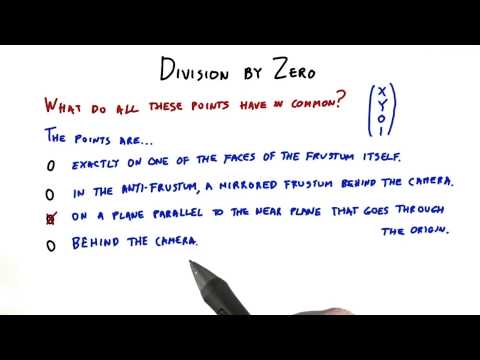 DIVISION BY ZERO
WHAT DO ALL THESE POINTS HAVE IN COMMON?
X
Y
0
1
THE POINTS ARE...
EXACTLY ON ONE OF THE FACES OF THE FRUSTUM ITSELF.
IN THE ANTI-FRUSTUM, A MIRRORED FRUSTUM BEHIND THE CAMERA.
ON A PLANE PARALLEL TO THE NEAR PLANE THAT GOES THROUGH
THE ORIGIN.
BEHIND THE CAMERA.